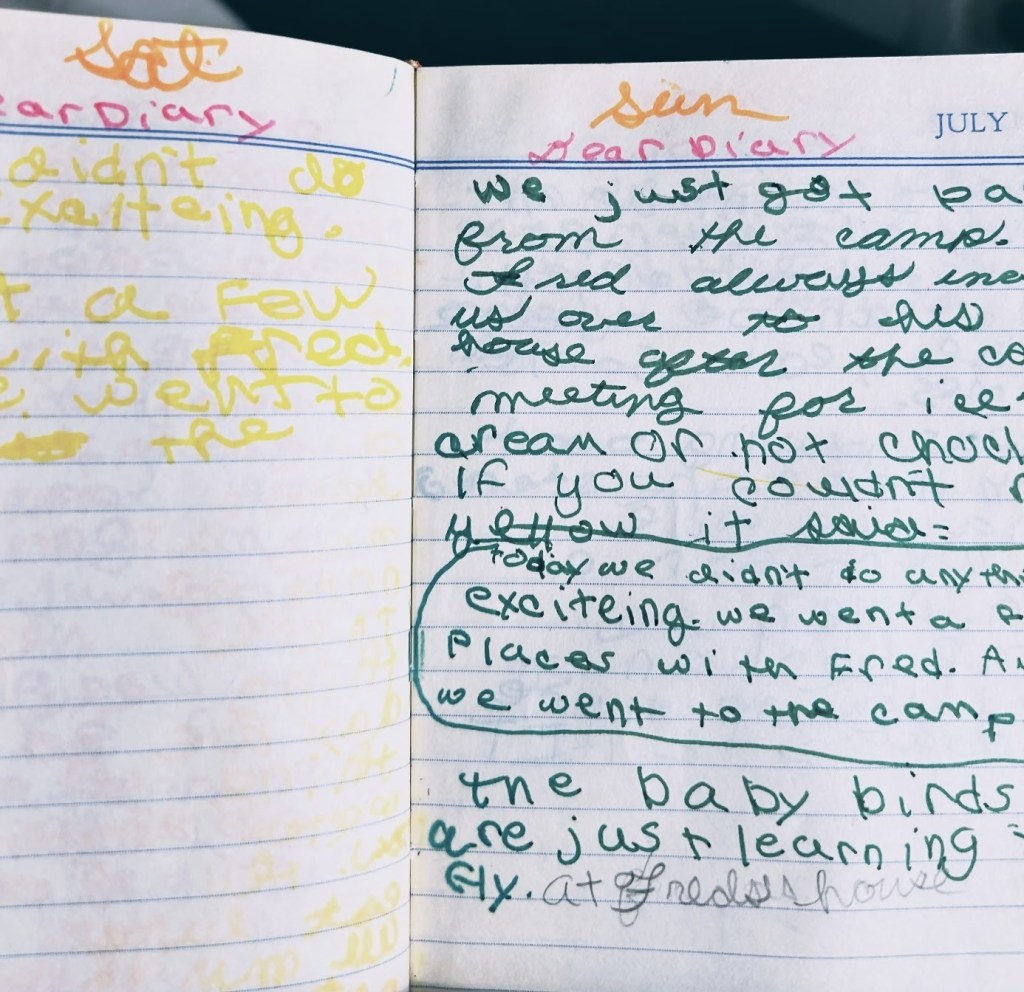 Sat
ear Diary
didn't do
xeiteing.
t a Few
with Fred.
e went to
the
Sun
JULY
Dear Diary
We just got ba
from the camp.
Fred always
us over to his
house after the co
meeting for ice-
cream Or hot choc
If you couldn't r
yellow it said=
Today we didn't do anythi
exciteing. we went a f
Places with Fred. A
we went to the camp
the baby birds
are just learning
Fly. at Freds's house